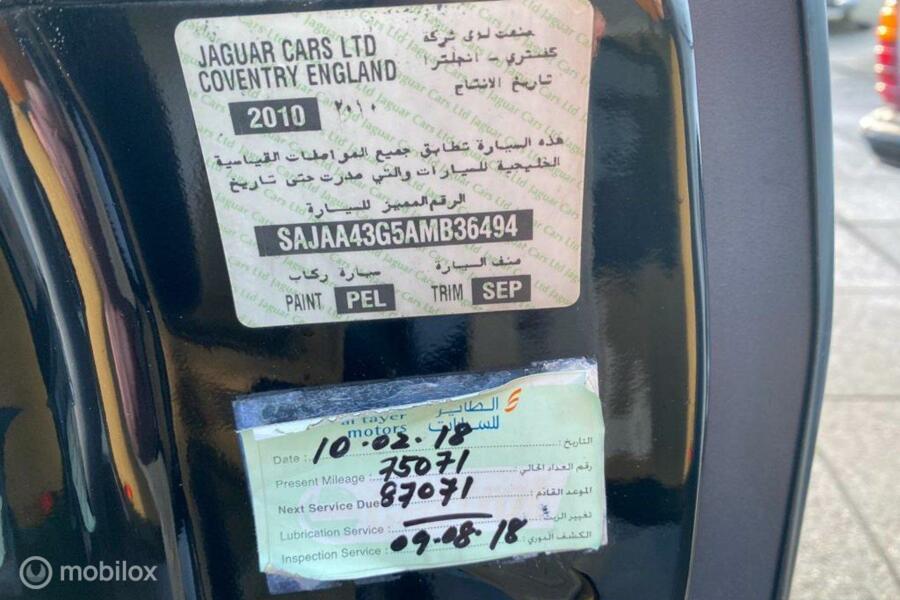 JAGUAR CARS LTD
COVENTRY ENGLAND
صنعت لدى شركة
كفنتري - انجلترا
تاريخ الانتاج
2010 ٢٠١٠
هذه السيارة تطابق جميع المواصفات القياسية
الخليجية للسيارات والتي صدرت حتى تاريخ
الرقم المميز للسيارة
SAJAA43G5AMB36494
سيارة ركاب صنف السيارة
PAINT PEL TRIM SEP
al tayer motors
الطاير للسيارات
Date : 10.02.18 التاريخ :
Present Mileage : 75071 رقم العداد الحالي :
Next Service Due 87071 الموعد القادم :
Lubrication Service : تغيير الزيت :
Inspection Service : 09.08.18 الكشف الدوري :
mobilox